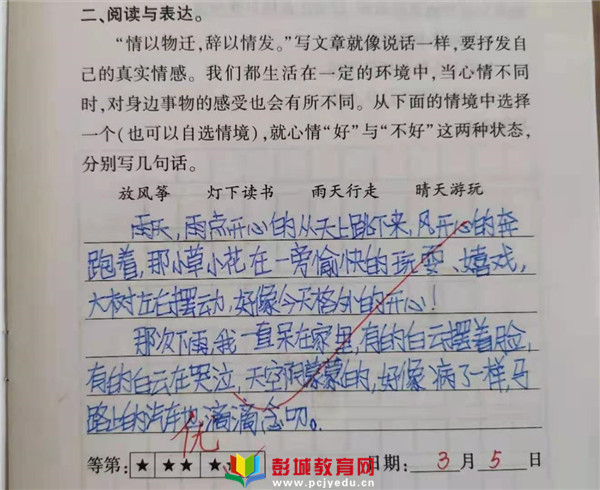 二、阅读与表达。
“情以物迁,辞以情发。”写文章就像说话一样,要抒发自
己的真实情感。我们都生活在一定的环境中,当心情不同
时,对身边事物的感受也会有所不同。从下面的情境中选择
一个(也可以自选情境),就心情“好”与“不好”这两种状态,
分别写几句话。
放风筝 灯下读书 雨天行走 晴天游玩
雨天,雨点开心的从天上跳下来,风开心的奔
跑着,那小草小花在一旁愉快的玩耍、嬉戏,
大树左右摆动,好像今天格外的开心!
那次下雨,我一直呆在家里,有的白云摆着脸,
有的白云在哭泣,天空阴蒙蒙的,好像病了一样,马
路上的汽车 滴滴念叨。
优
等第: ★ ★★ ★
彭城教育网
www.pcjyedu.cn
日期: 3 月 5 日